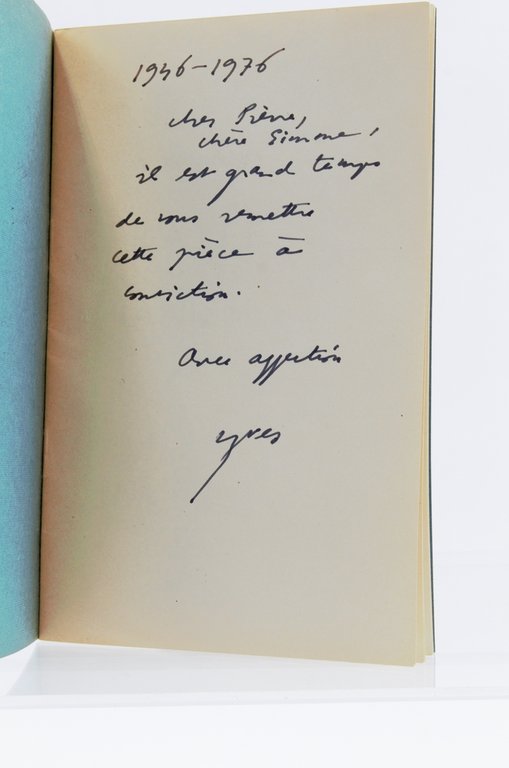 1946-1976
cher Pierre,
chère Simone,
il est grand temps
de vous remettre
cette pièce à
conviction.
Avec affection
yves